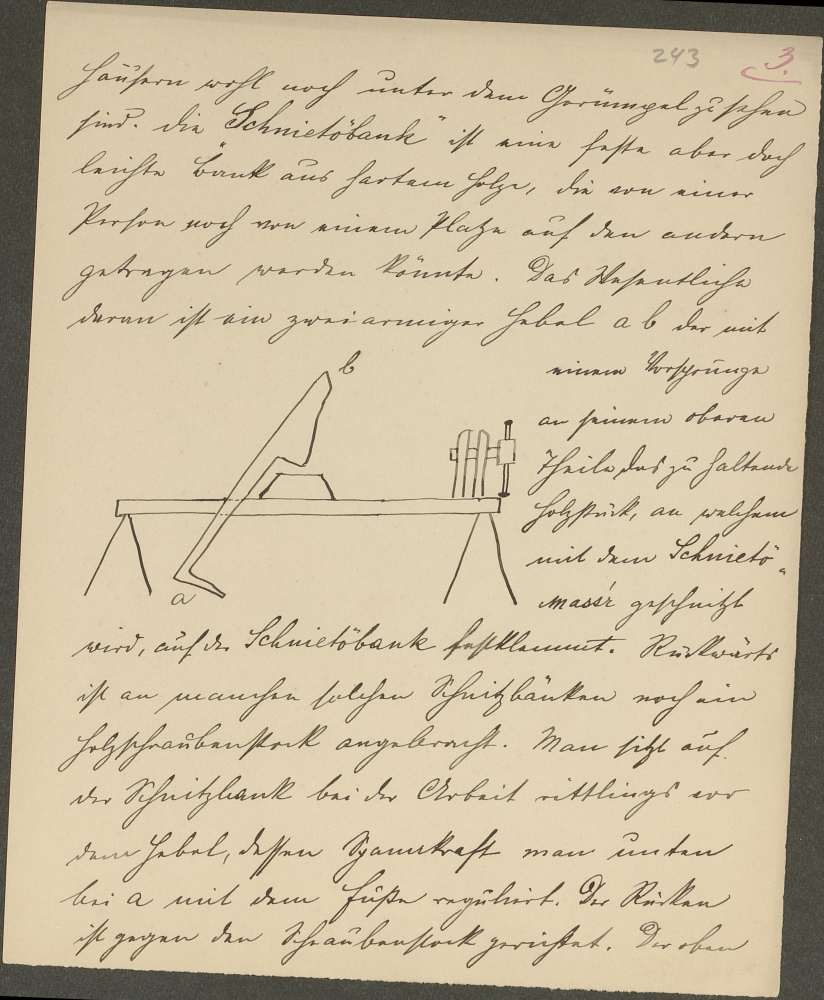 243 3.
Häusern wohl noch unter dem Gerümpel zu sehen
sind. Die „Schnietöbank“ ist eine feste aber doch
leichte Bank aus hartem Holze, die von einer
Person noch von einem Platze auf den andern
getragen werden könnte. Das Wesentliche
daran ist ein zweiarmiger Hebel ab der mit
b
einem Vorsprunge
an seinem oberen
Theile das zu haltende
Holzstück, an welchem
mit dem Schnietö-
a
massr geschnitzt
wird, auf der Schnietöbank festklemmt. Rückwärts
ist an manchen solchen Schnitzbänken noch ein
Holzschraubenstock angebracht. Man sitzt auf
der Schnitzbank bei der Arbeit rittlings vor
dem Hebel, dessen Spannkraft man unten
bei a mit dem Fuße reguliert. Der Rücken
ist gegen den Schraubenstock gerichtet. Der oben